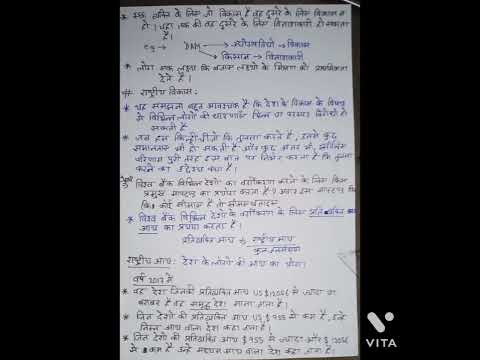 * एक व्यक्ति के लिए जो विकास है वह दूसरे के लिए विकास न
हो। यहां तक की वह दूसरे के लिए विनाशकारी हो सकता
है।
eg → DAM → उद्योगपतियों → विकास
→ किसान → विनाशकारी
* लोग एक लक्ष्य कि बजाय लक्ष्यों के मिश्रण को प्राथमिकता
देते है।
# राष्ट्रीय विकास :
* यह समझना बहुत आवश्यक है कि देश के विकास के विषय
में विभिन्न लोगों की धारणाएँ भिन्न या परस्पर विरोधी हो
सकती है
* जब हम किन्हीं चीजों कि तुलना करते है, उनमें कुछ
समानताएं भी हो सकती है और कुछ अंतर भी, इसीलिए
परिणाम पूरी तरह इस बात पर निर्भर करता है कि तुलना
करने का उद्देश्य क्या है।
विश्व बैंक विभिन्न देशों का वर्गीकरण करने के लिए किस
प्रमुख मापदण्ड का प्रयोग करता है? अगर इस मापदण्ड कि
कोई सीमाएं है तो सीमाएं बताइए
* विश्व बैंक विभिन्न देशों के वर्गीकरण के लिए प्रतिव्यक्ति
आय का प्रयोग करता है।
प्रतिव्यक्ति आय = राष्ट्रीय आय
कुल जनसंख्या
राष्ट्रीय आय: देश के लोगों की आय का योग।
वर्ष 2017 में
* वह देश जिनकी प्रतिव्यक्ति आय US $ 12056 से ज्यादा या
बराबर है वह समृद्ध देश माना जाता है।
* जिन देशों की प्रतिव्यक्ति आय US $ 955 से कम है, उन्हें
निम्न आय वाला देश कहा जाता है।
* जिन देशों की प्रतिव्यक्ति आय $ 955 से ज्यादा और $ 12056
से कम है उन्हें मध्यम आय वाला देश कहा जाता है।
VITA